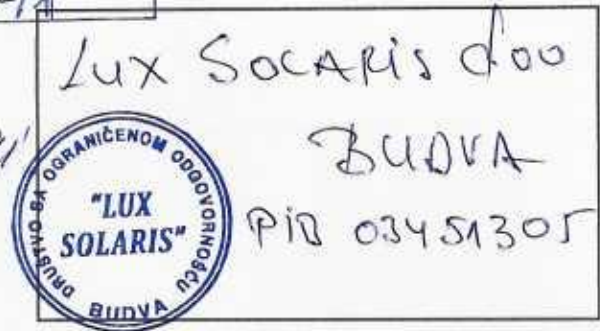 LUX SOCARIS doo
BUDVA
PIB 03451305
DRUŠTVO SA OGRANIČENOM ODGOVORNOŠĆU
"LUX
SOLARIS"
BUDVA